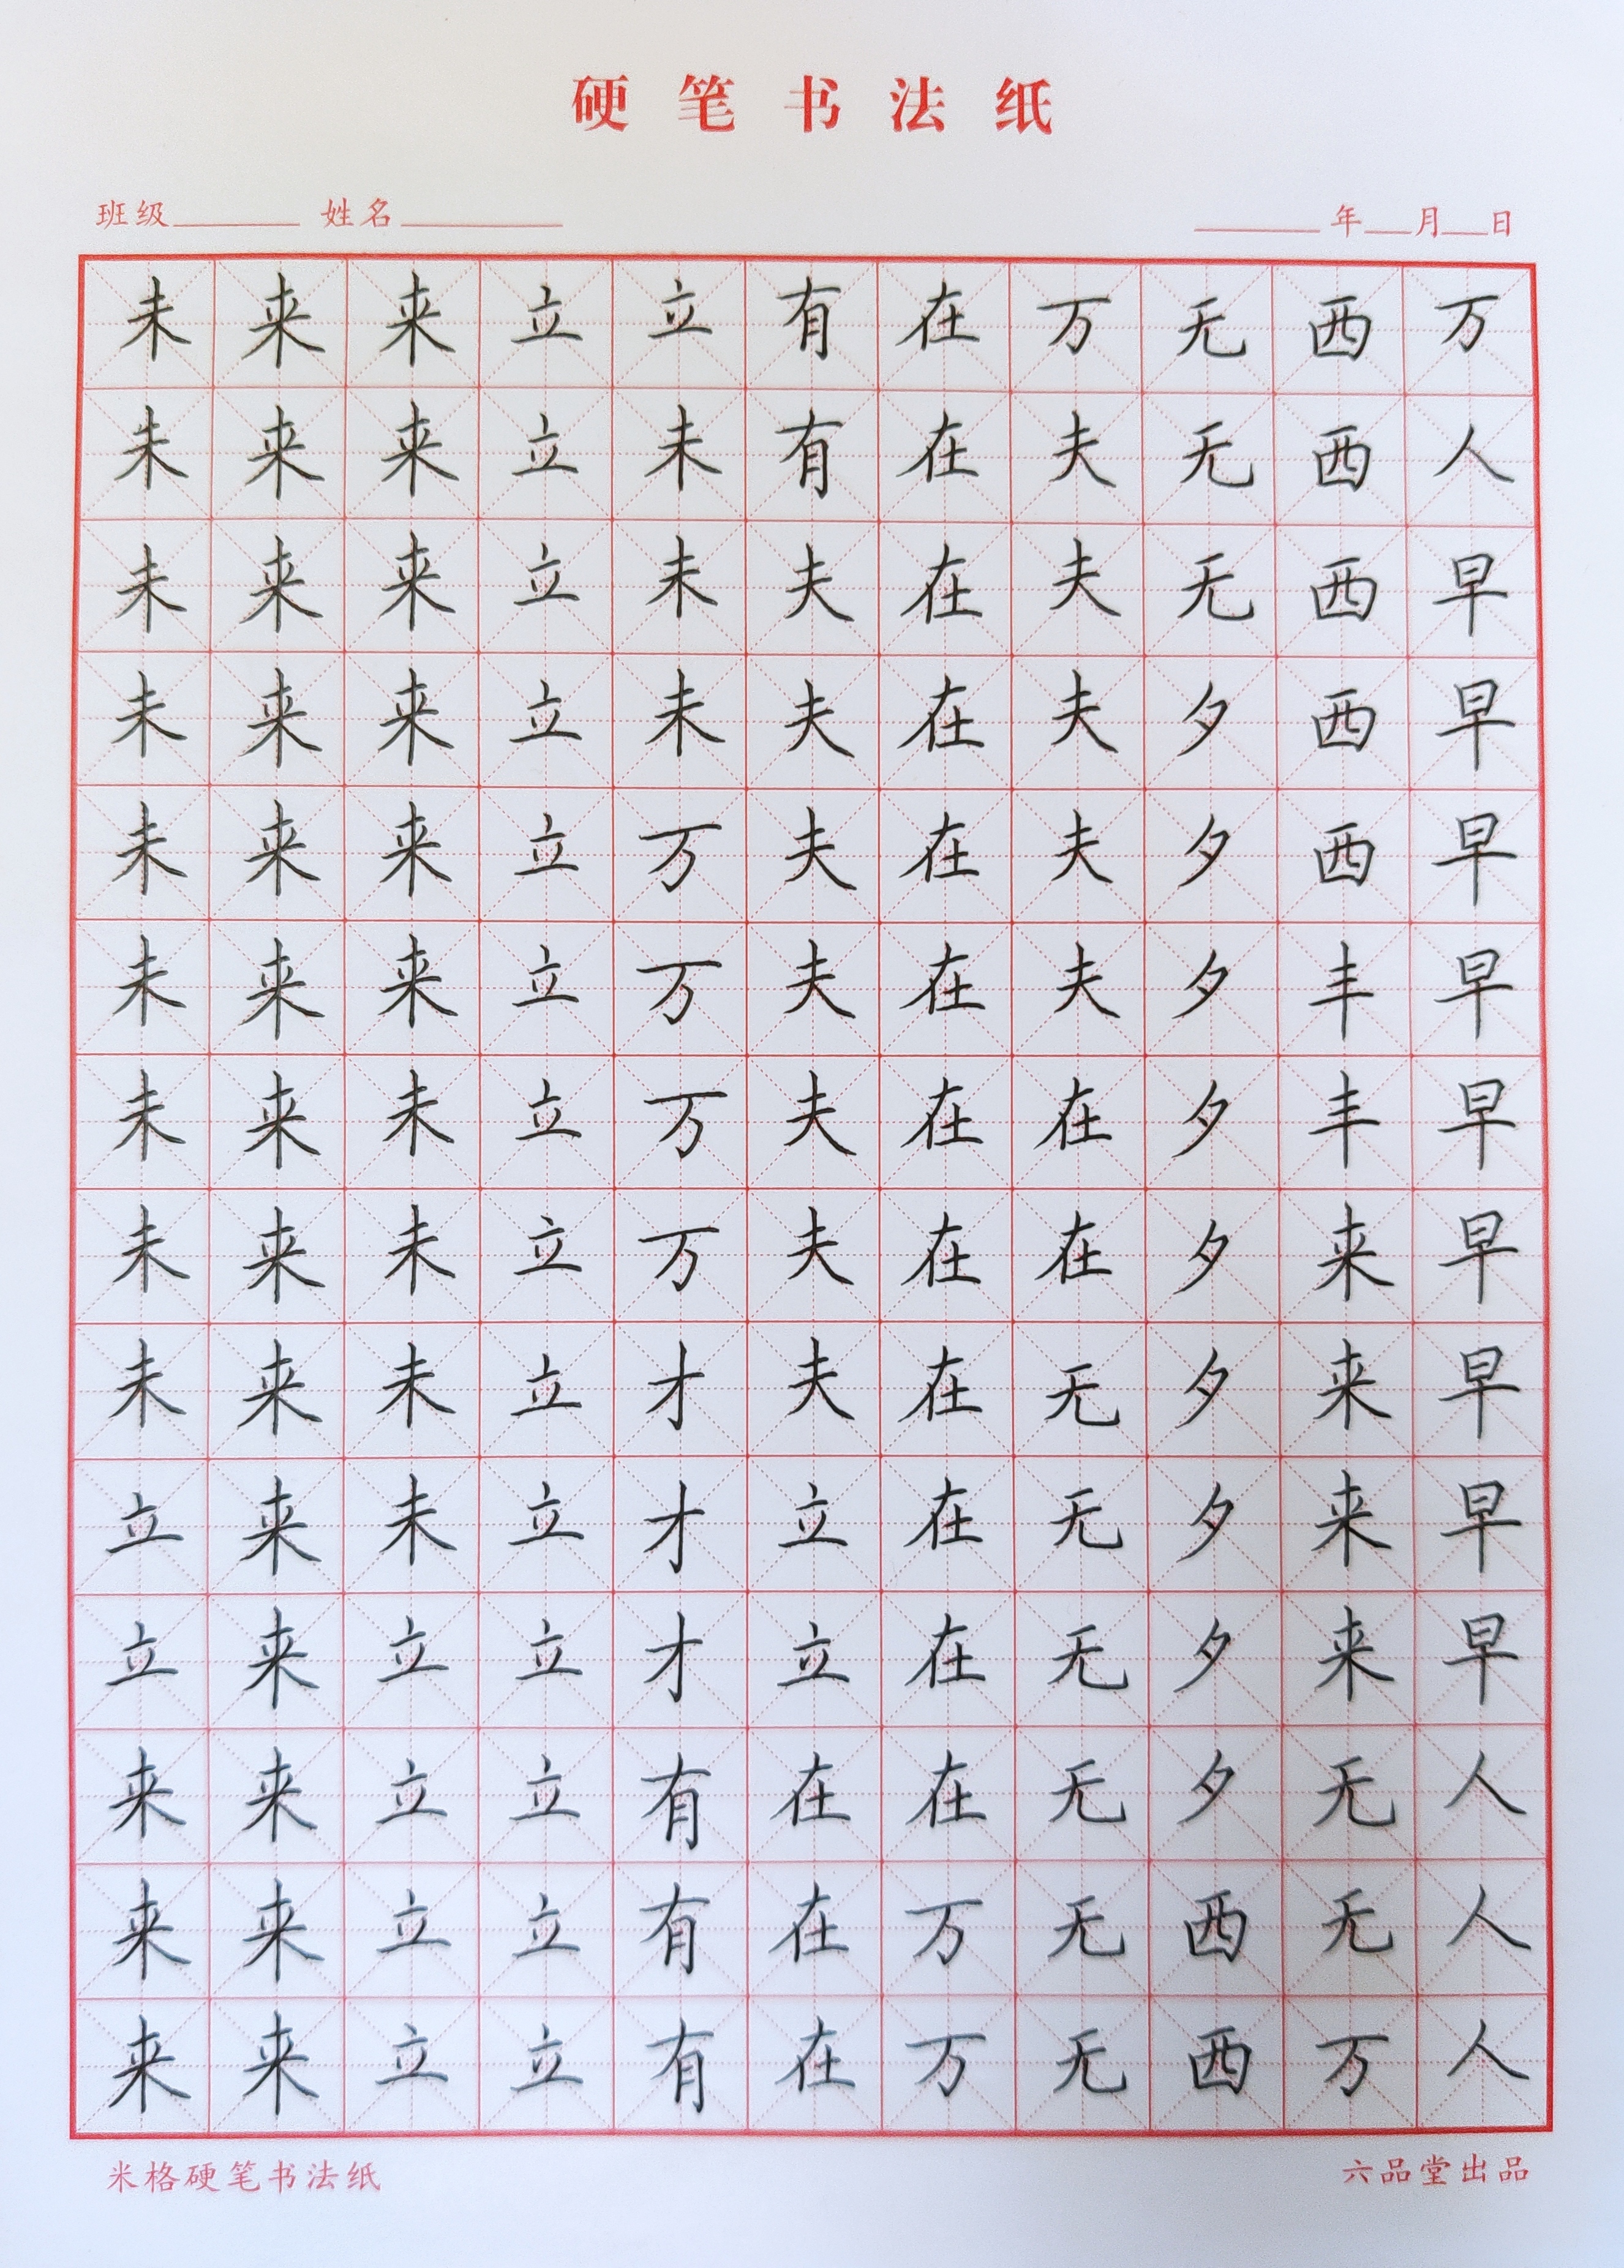 硬笔书法纸
班级 姓名 年 月 日
未来来立立有在万无西万
朱来来立未有在夫无西人
未来来立未夫在夫无西早
未来来立未夫在夫夕西早
未来来立万夫在夫夕西早
未来来立万夫在夫夕丰早
未来未立万夫在在夕丰早
未来未立万夫在在夕来早
未来未立才夫在无夕来早
立来未立才立在无夕来早
立来立立才立在无夕来早
来来立立有在在无夕无人
来来立立有在万无西无人
来来立立有在万无西万人
米格硬笔书法纸 六品堂出品